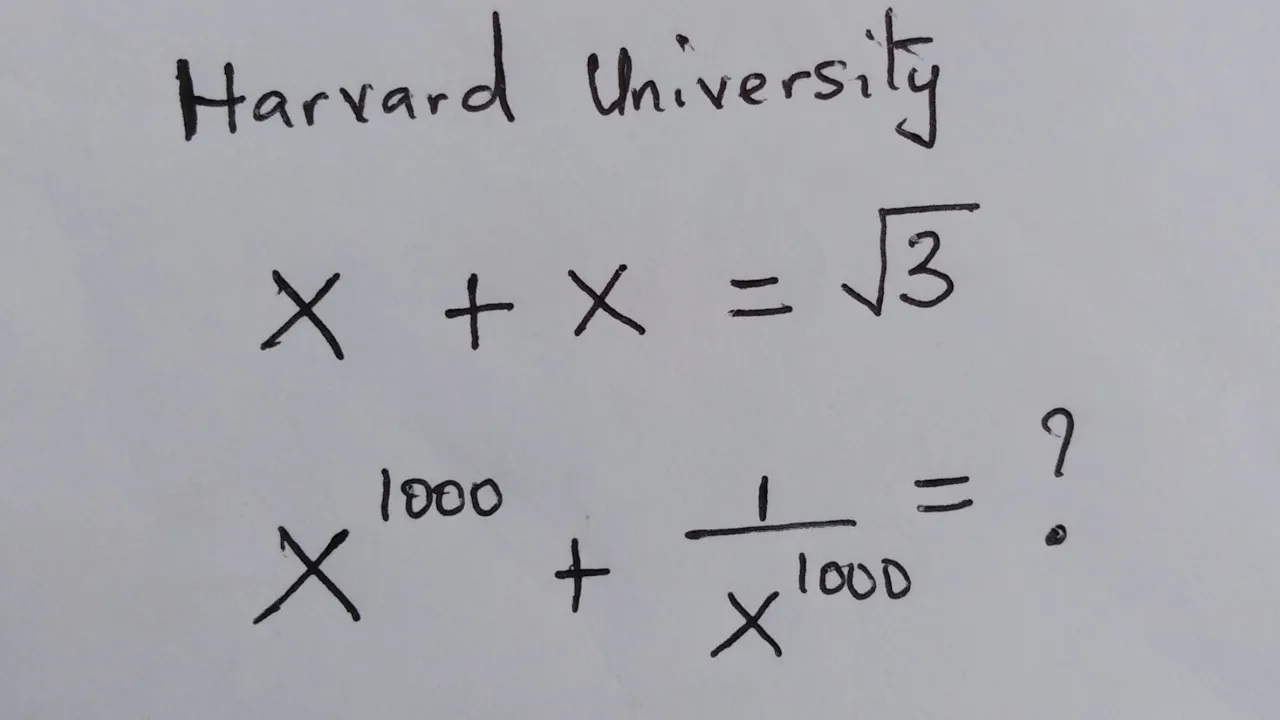 Harvard University
x + x = √3
x^1000 + 1/x^1000 = ?